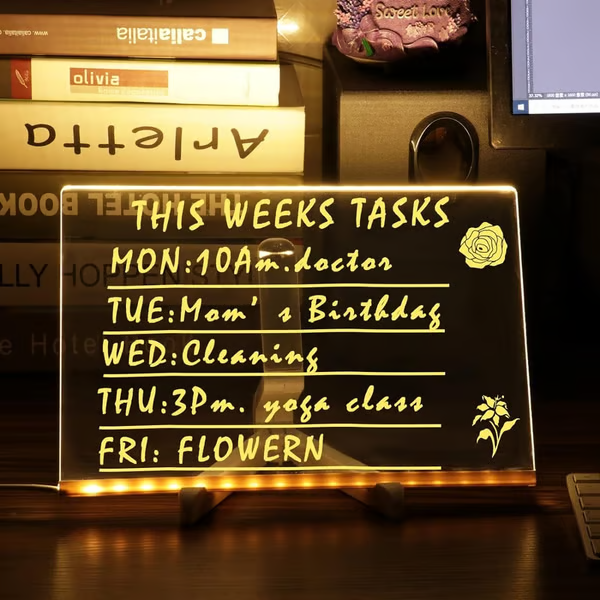 callaitalia
www.callaitalia.com
olivia
Arletta
THE HOTEL BOOK
Sweet Love
THIS WEEKS TASKS
MON:10Am.doctor
TUE:Mom's Birthdag
WED:Cleaning
THU:3Pm. yoga class
FRI: FLOWERN